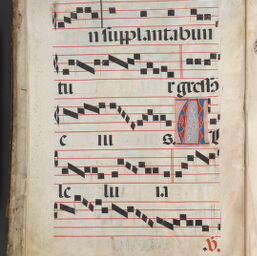 n supplantabun
tu r gresso
e ius. A l
le lu ia
.v.